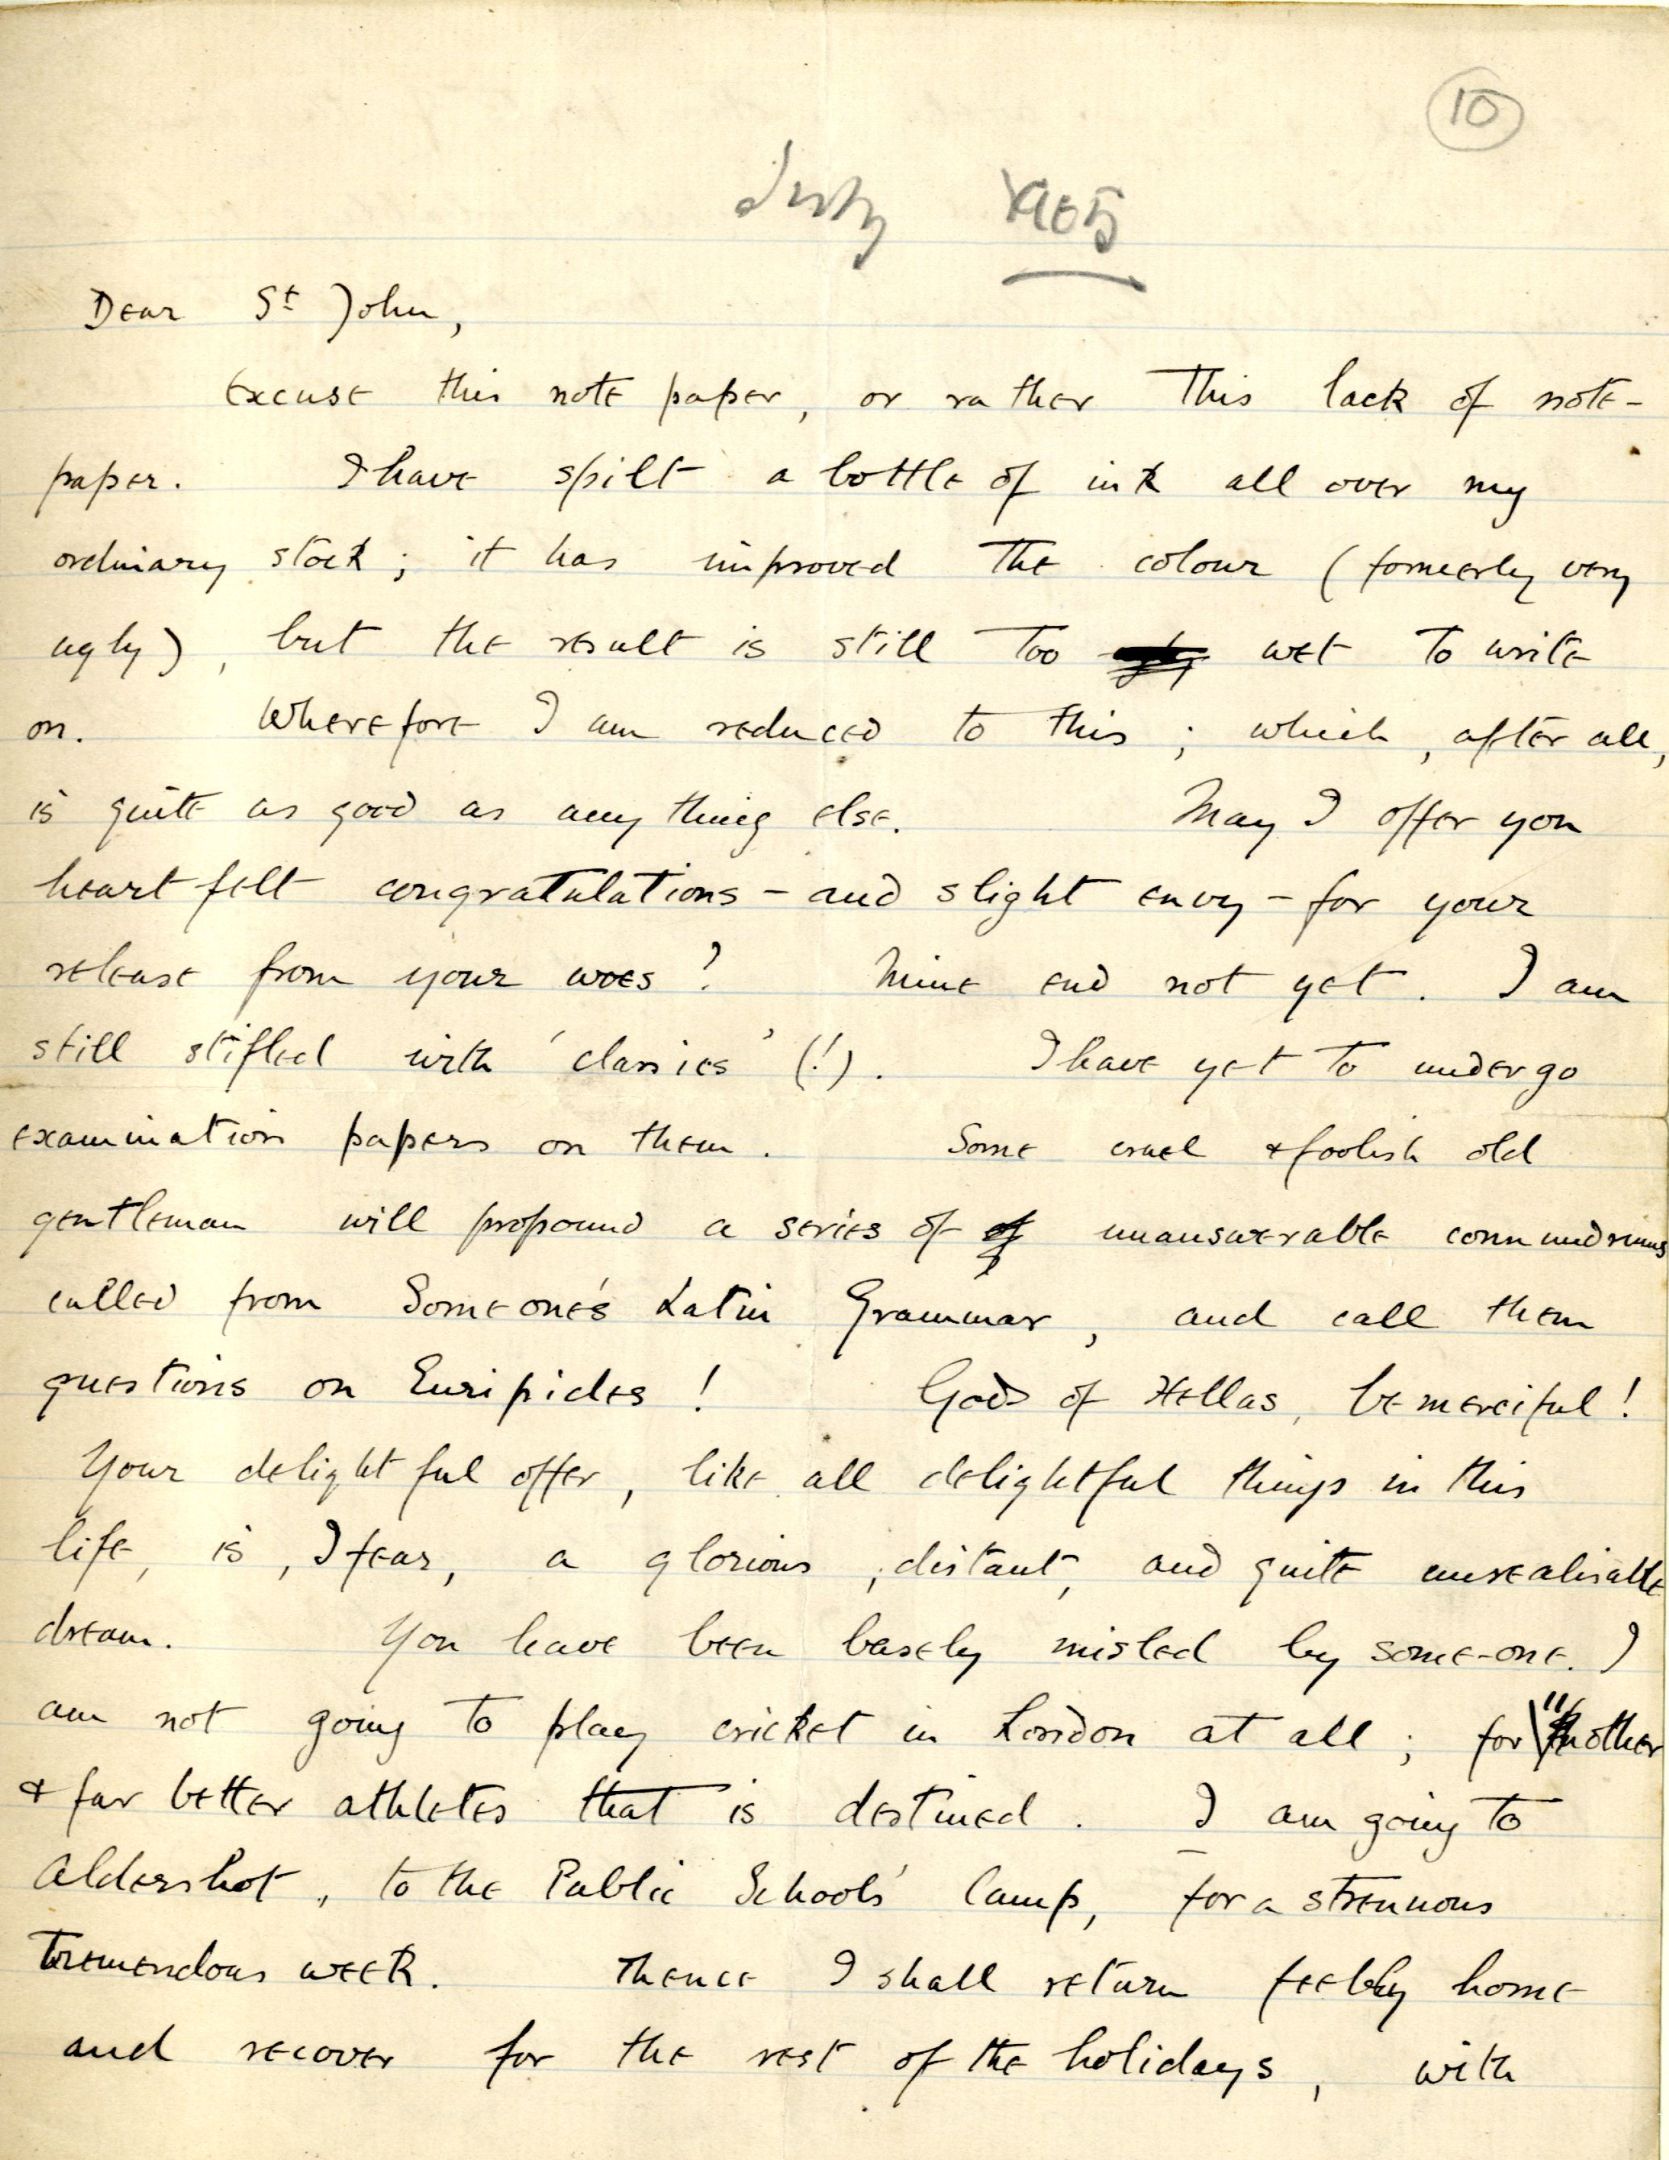 10
July 1905
Dear St John,
Excuse this note paper, or rather this lack of note-
paper. I have spilt a bottle of ink all over my
ordinary stock; it has improved the colour (formerly very
ugly), but the result is still too wet to write
on. Wherefore I am reduced to this; which, after all,
is quite as good as anything else. May I offer you
heartfelt congratulations - and slight envy - for your
release from your woes? Mine end not yet. I am
still stifled with 'classics' (!). I have yet to undergo
examination papers on them. Some cruel & foolish old
gentleman will propound a series of of unanswerable conundrums
culled from Someone's Latin Grammar, and call them
questions on Euripides! Gods of Hellas, be merciful!
Your delightful offer, like all delightful things in this
life, is, I fear, a glorious, distant, and quite unrealisable
dream. You have been basely misled by some-one. I
am not going to play cricket in London at all; for other
& far better athletes that is destined. I am going to
Aldershot, to the Public Schools' Camp, for a strenuous
tremendous week. Thence I shall return feebly home
and recover for the rest of the holidays, with